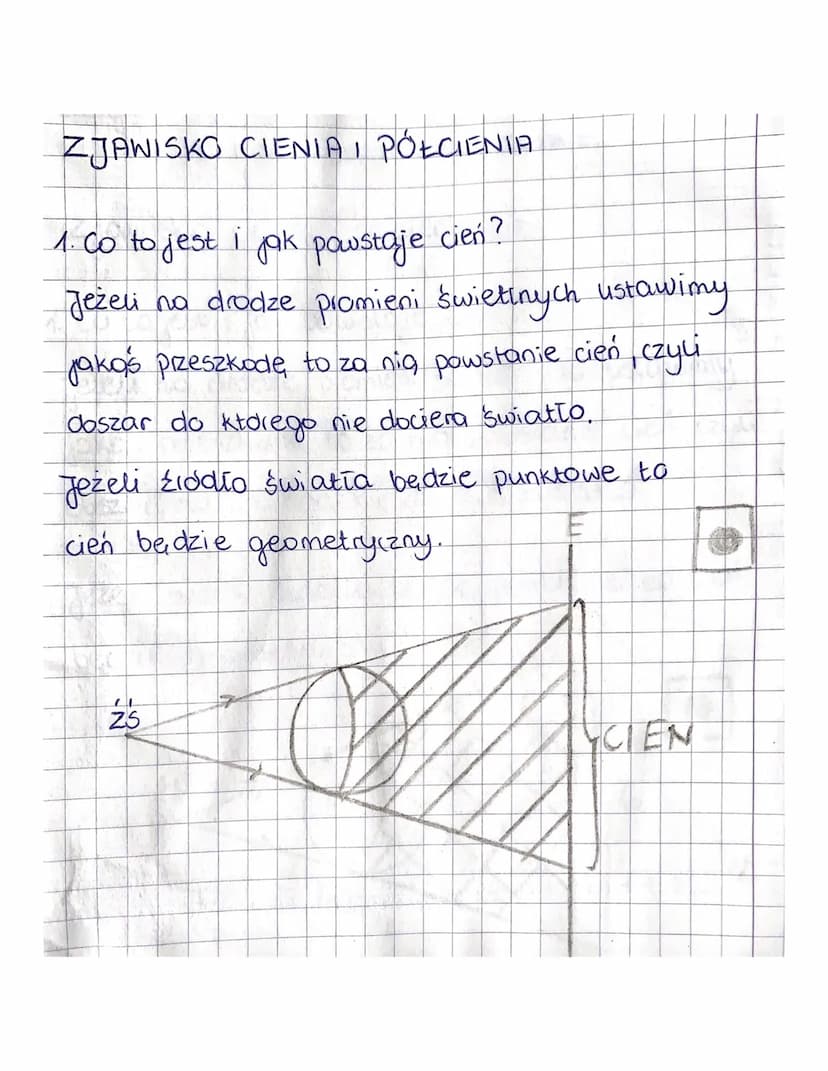 ZJAWISKO CIENIA I PÓŁCIENIA
1. Co to jest i jak powstaje cień?
Jeżeli na drodze promieni świetlnych ustawimy
jakąś przeszkodę to za nią powstanie cień, czyli
obszar do którego nie dociera światło.
Jeżeli źródło światła będzie punktowe to
cień będzie geometryczny.
E
źś
CIEN